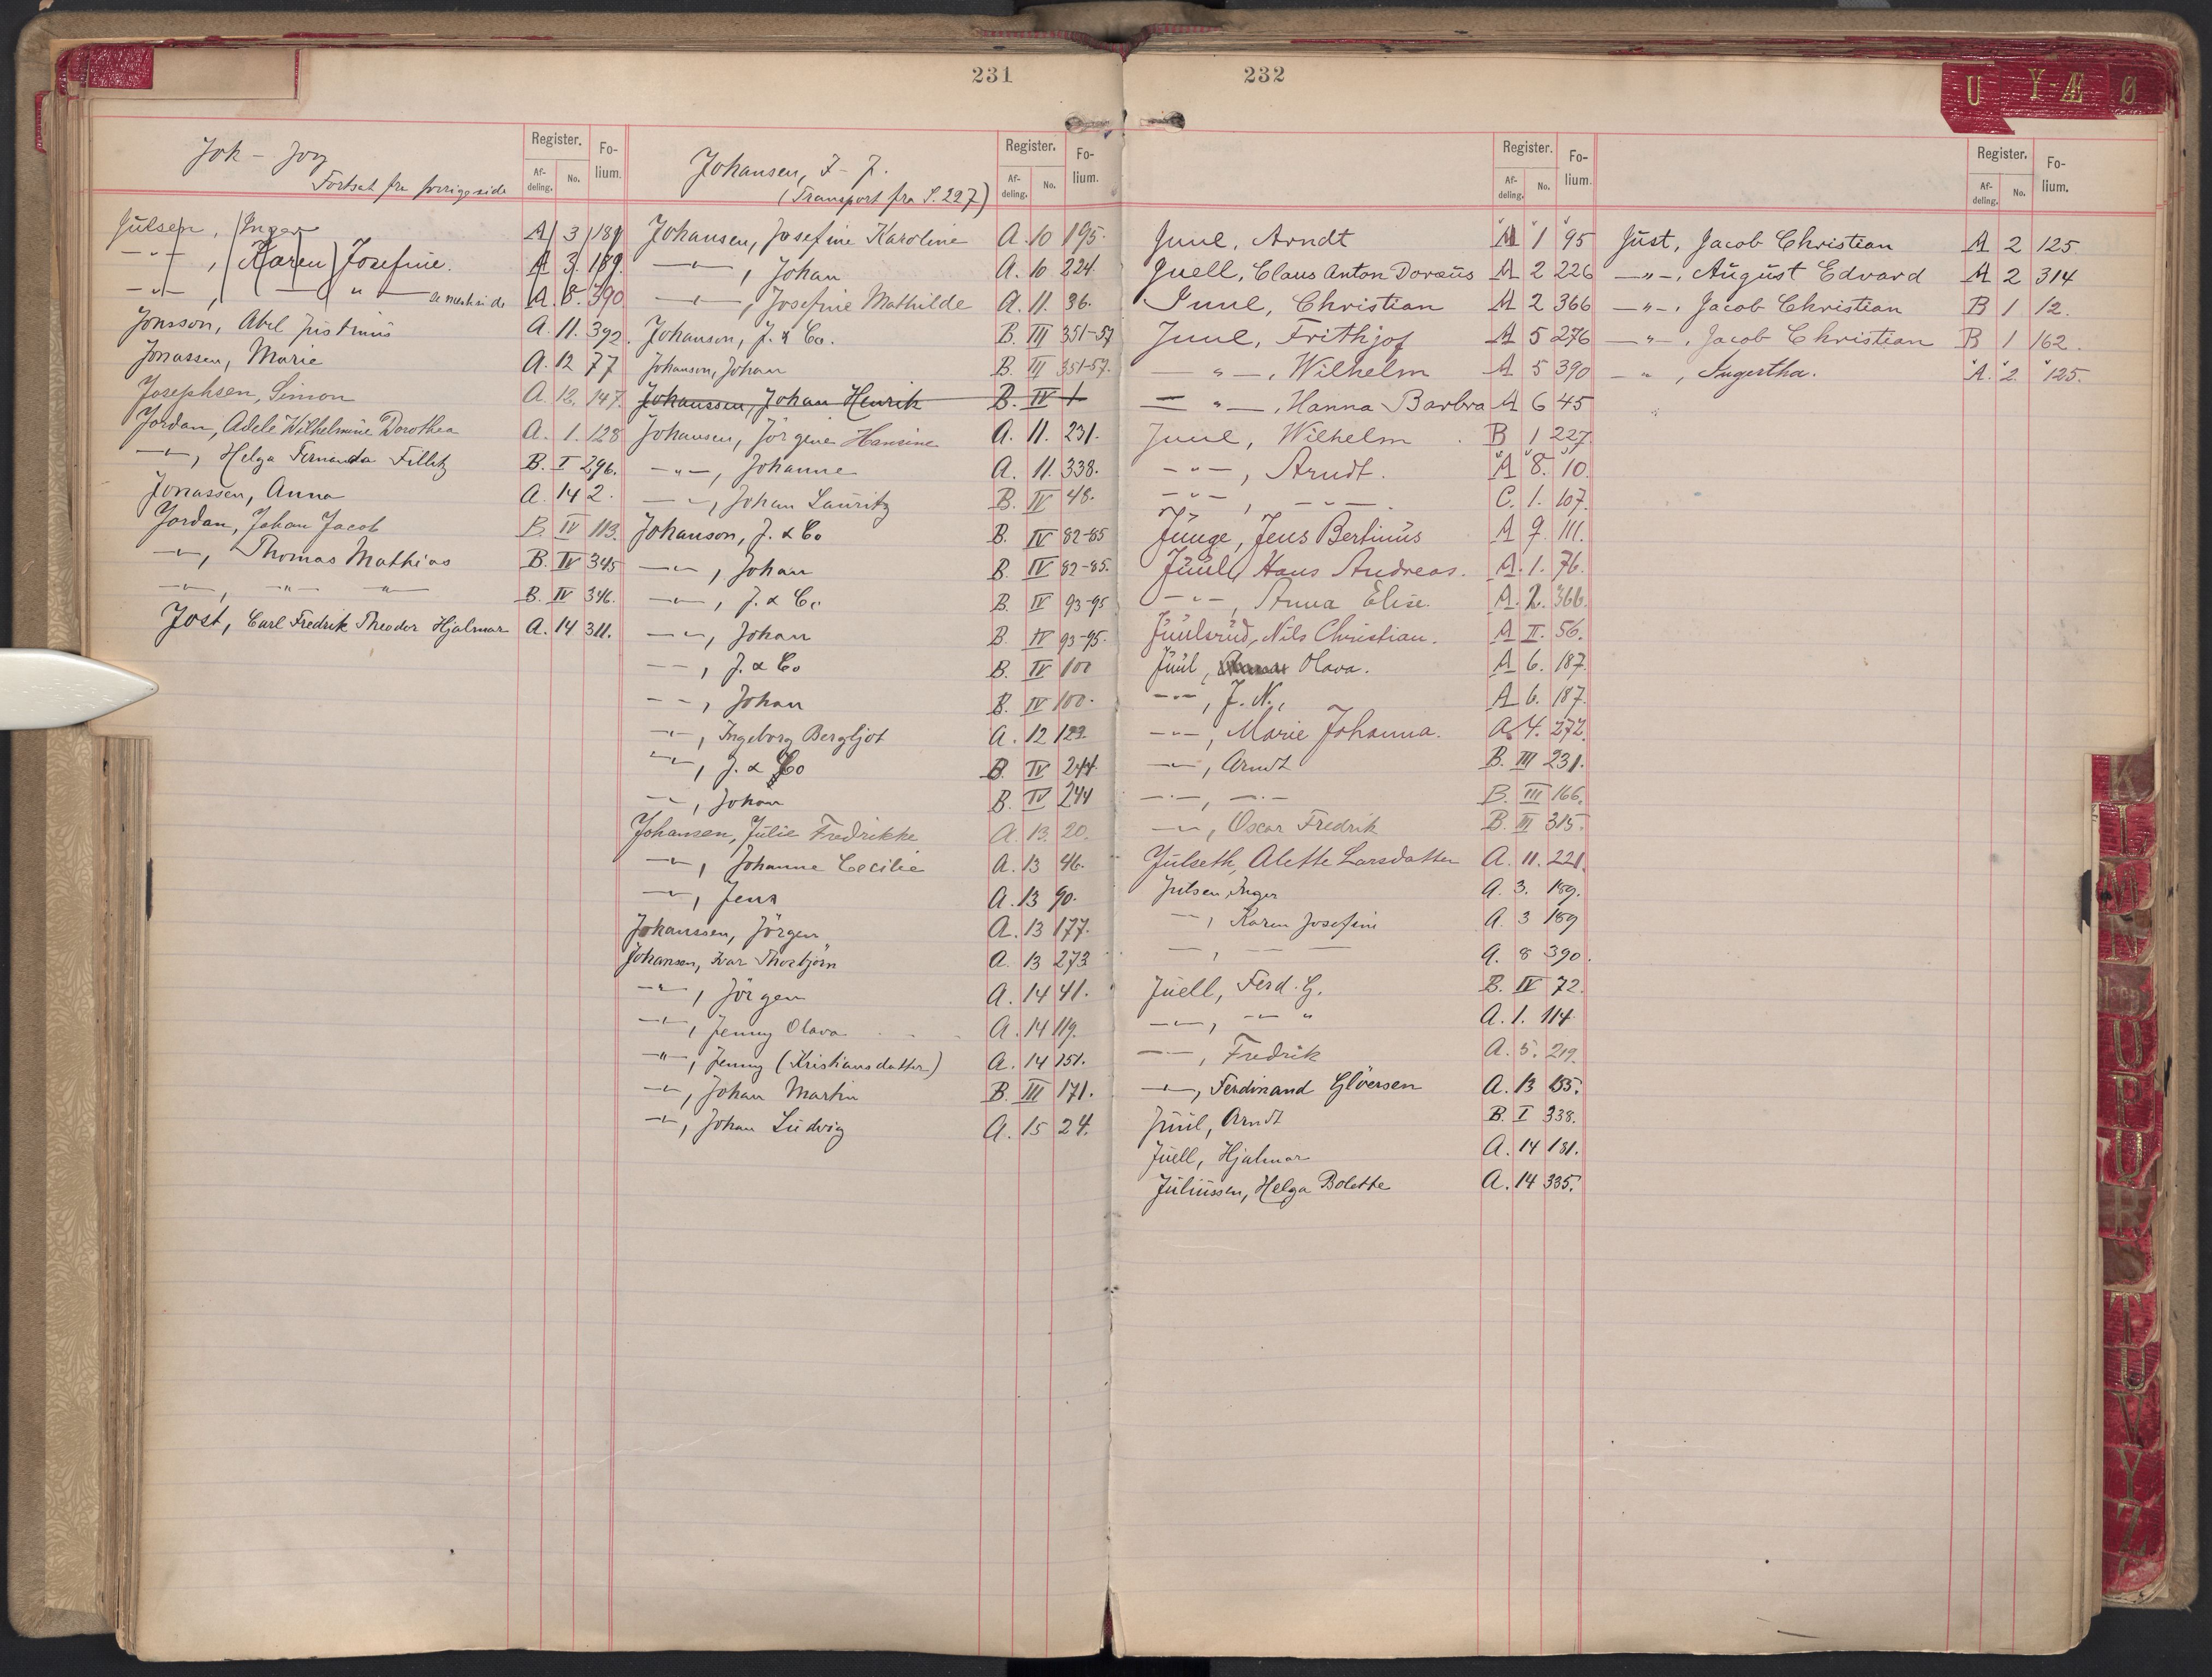 231
Jok - Jorg
Fortsat fra forrige side
Register.
Af-
deling.
No.
Fo-
lium.
Julsen, Inger A 3 189
-"-, Karen Josefine. A 3. 189.
-"-, - " - se næste side A. 8. 390
Jonsson, Abel Justinus A. 11. 392.
Jonassen, Marie A. 12 77
Josephsen, Simon A. 12. 147.
Jordan, Adele Wilhelmine Dorothea A. 1. 128
-"-, Helga Fernanda Fillitz B. I 296.
Jonassen, Anna A. 14 2.
Jordan, Johan Jacob B. IV 113.
-"-, Thomas Mathias B. IV 345
-"-, -"- -"- B. IV 346.
Jost, Carl Fredrik Theodor Hjalmar A. 14 311.
Johansen, I - J.
(Transport fra S. 227)
Register.
Af-
deling.
No.
Fo-
lium.
Johansen, Josefine Karoline A. 10 195.
-"-, Johan A. 10 224.
-"-, Josefine Mathilde A. 11. 36.
Johanson, J. & Co. B. III 351-57
Johanson, Johan B. III 351-57.
Johanssen, Johan Henrik B. IV 1
Johansen, Jörgine Hansine A. 11. 231.
-"-, Johanne A. 11. 338.
-"-, Johan Lauritz B. IV 48.
Johanson, J. & Co B. IV 82-85
-"-, Johan B. IV 82-85.
-"-, J. & Co B. IV 93-95
-"-, Johan B. IV 93-95.
-"-, J. & Co B. IV 100
-"-, Johan B. IV 100.
-"-, Ingeborg Bergljot A. 12 122
-"-, J. & Co B. IV 244.
-"-, Johan B. IV 244
Johansen, Julie Fredrikke A. 13. 20.
-"-, Johanne Cecilie A. 13 46.
-"-, Jens A. 13 90.
Johanssen, Jörgen A. 13 177.
Johansen, Ivar Thorbjörn A. 13 273
-"-, Jörgen A. 14 41.
-"-, Jenny Olava A. 14 119.
-"-, Jenny (Kristiansdatter) A. 14 151.
-"-, Johan Martin B. III 171.
-"-, Johan Ludvig A. 15 24.
232
Register.
Af-
deling.
No.
Fo-
lium.
Juul, Arndt A 1 95
Juell, Claus Anton Doraus A 2 226
Juul, Christian A 2 366
Juul, Frithjof A 5 276
- " -, Wilhelm A 5 390
- " -, Hanna Barbra A 6 45
Juul, Wilhelm B 1 227.
- " -, Arndt. A 8. 10.
- " -, - " - C. 1. 107.
Junge, Jens Bertinus A 9. 111.
Juul, Hans Andreas. A. 1. 76.
- " -, Anna Elise. A. 2. 366.
Juulsrud, Nils Christian. A II. 56.
Juul, Olava. A 6. 187.
-"-, J. N., A 6. 187.
-"-, Marie Johanna. A. 4. 272.
-"-, Arndt B. III 231.
-"-, -"- B. III 166.
-"-, Oscar Fredrik B. III 315.
Julseth, Alette Larsdatter A. 11. 221.
Julsen, Inger A. 3. 189.
-"-, Karen Josefine A. 3 189
-, - - A. 8 390.
Juell, Ferd. G. B. IV 72.
-"-, -"- " A. 1. 114.
-"-, Fredrik A. 5. 219.
-"-, Ferdinand Glöersen A. 13 155.
Juul, Arndt B. I 338.
Juell, Hjalmar A. 14 181.
Juliussen, Helga Bolette A. 14 335.
Register.
Af-
deling.
No.
Fo-
lium.
Just, Jacob Christian A 2 125.
- " -, August Edvard A 2 314
- " -, Jacob Christian B 1 12.
- " -, Jacob Christian B 1 162.
- " -, Ingertha. A. 2 125.
U Y-Æ Ø
K
L
M
N
U
P
U
R
T
U
V
Y
Z